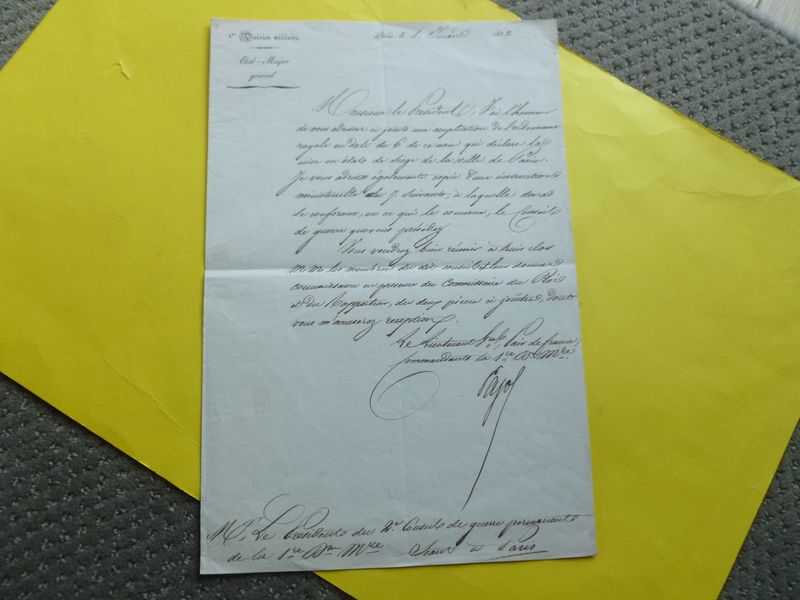 1re Division militaire.
Etat-Major
général
Paris, le 8 Juin 1832
Monsieur le Président, J'ai l'honneur
de vous adresser ci joints une ampliation de l'ordonnance
royale en date du 6 de ce mois qui déclare la
mise en état de siège de la ville de Paris.
Je vous adresse également copie d'une instruction
ministérielle du 7 suivant, à laquelle devra
se conformer, en ce qui le concerne, le Conseil
de guerre que vous présidez.
Vous voudrez bien réunir à huis clos
MM les membres du dit conseil et leur donner
connaissance en présence du Commissaire du Roi
et du Rapporteur, des deux pièces ci jointes, dont
vous m'accuserez réception.
Le Lieutenant Gral, Pair de france,
Commandant la 1re Don Mre
Pajol
Mr Le Président du 2e Conseil de guerre permanent
de la 1re Don Mre Séant à Paris